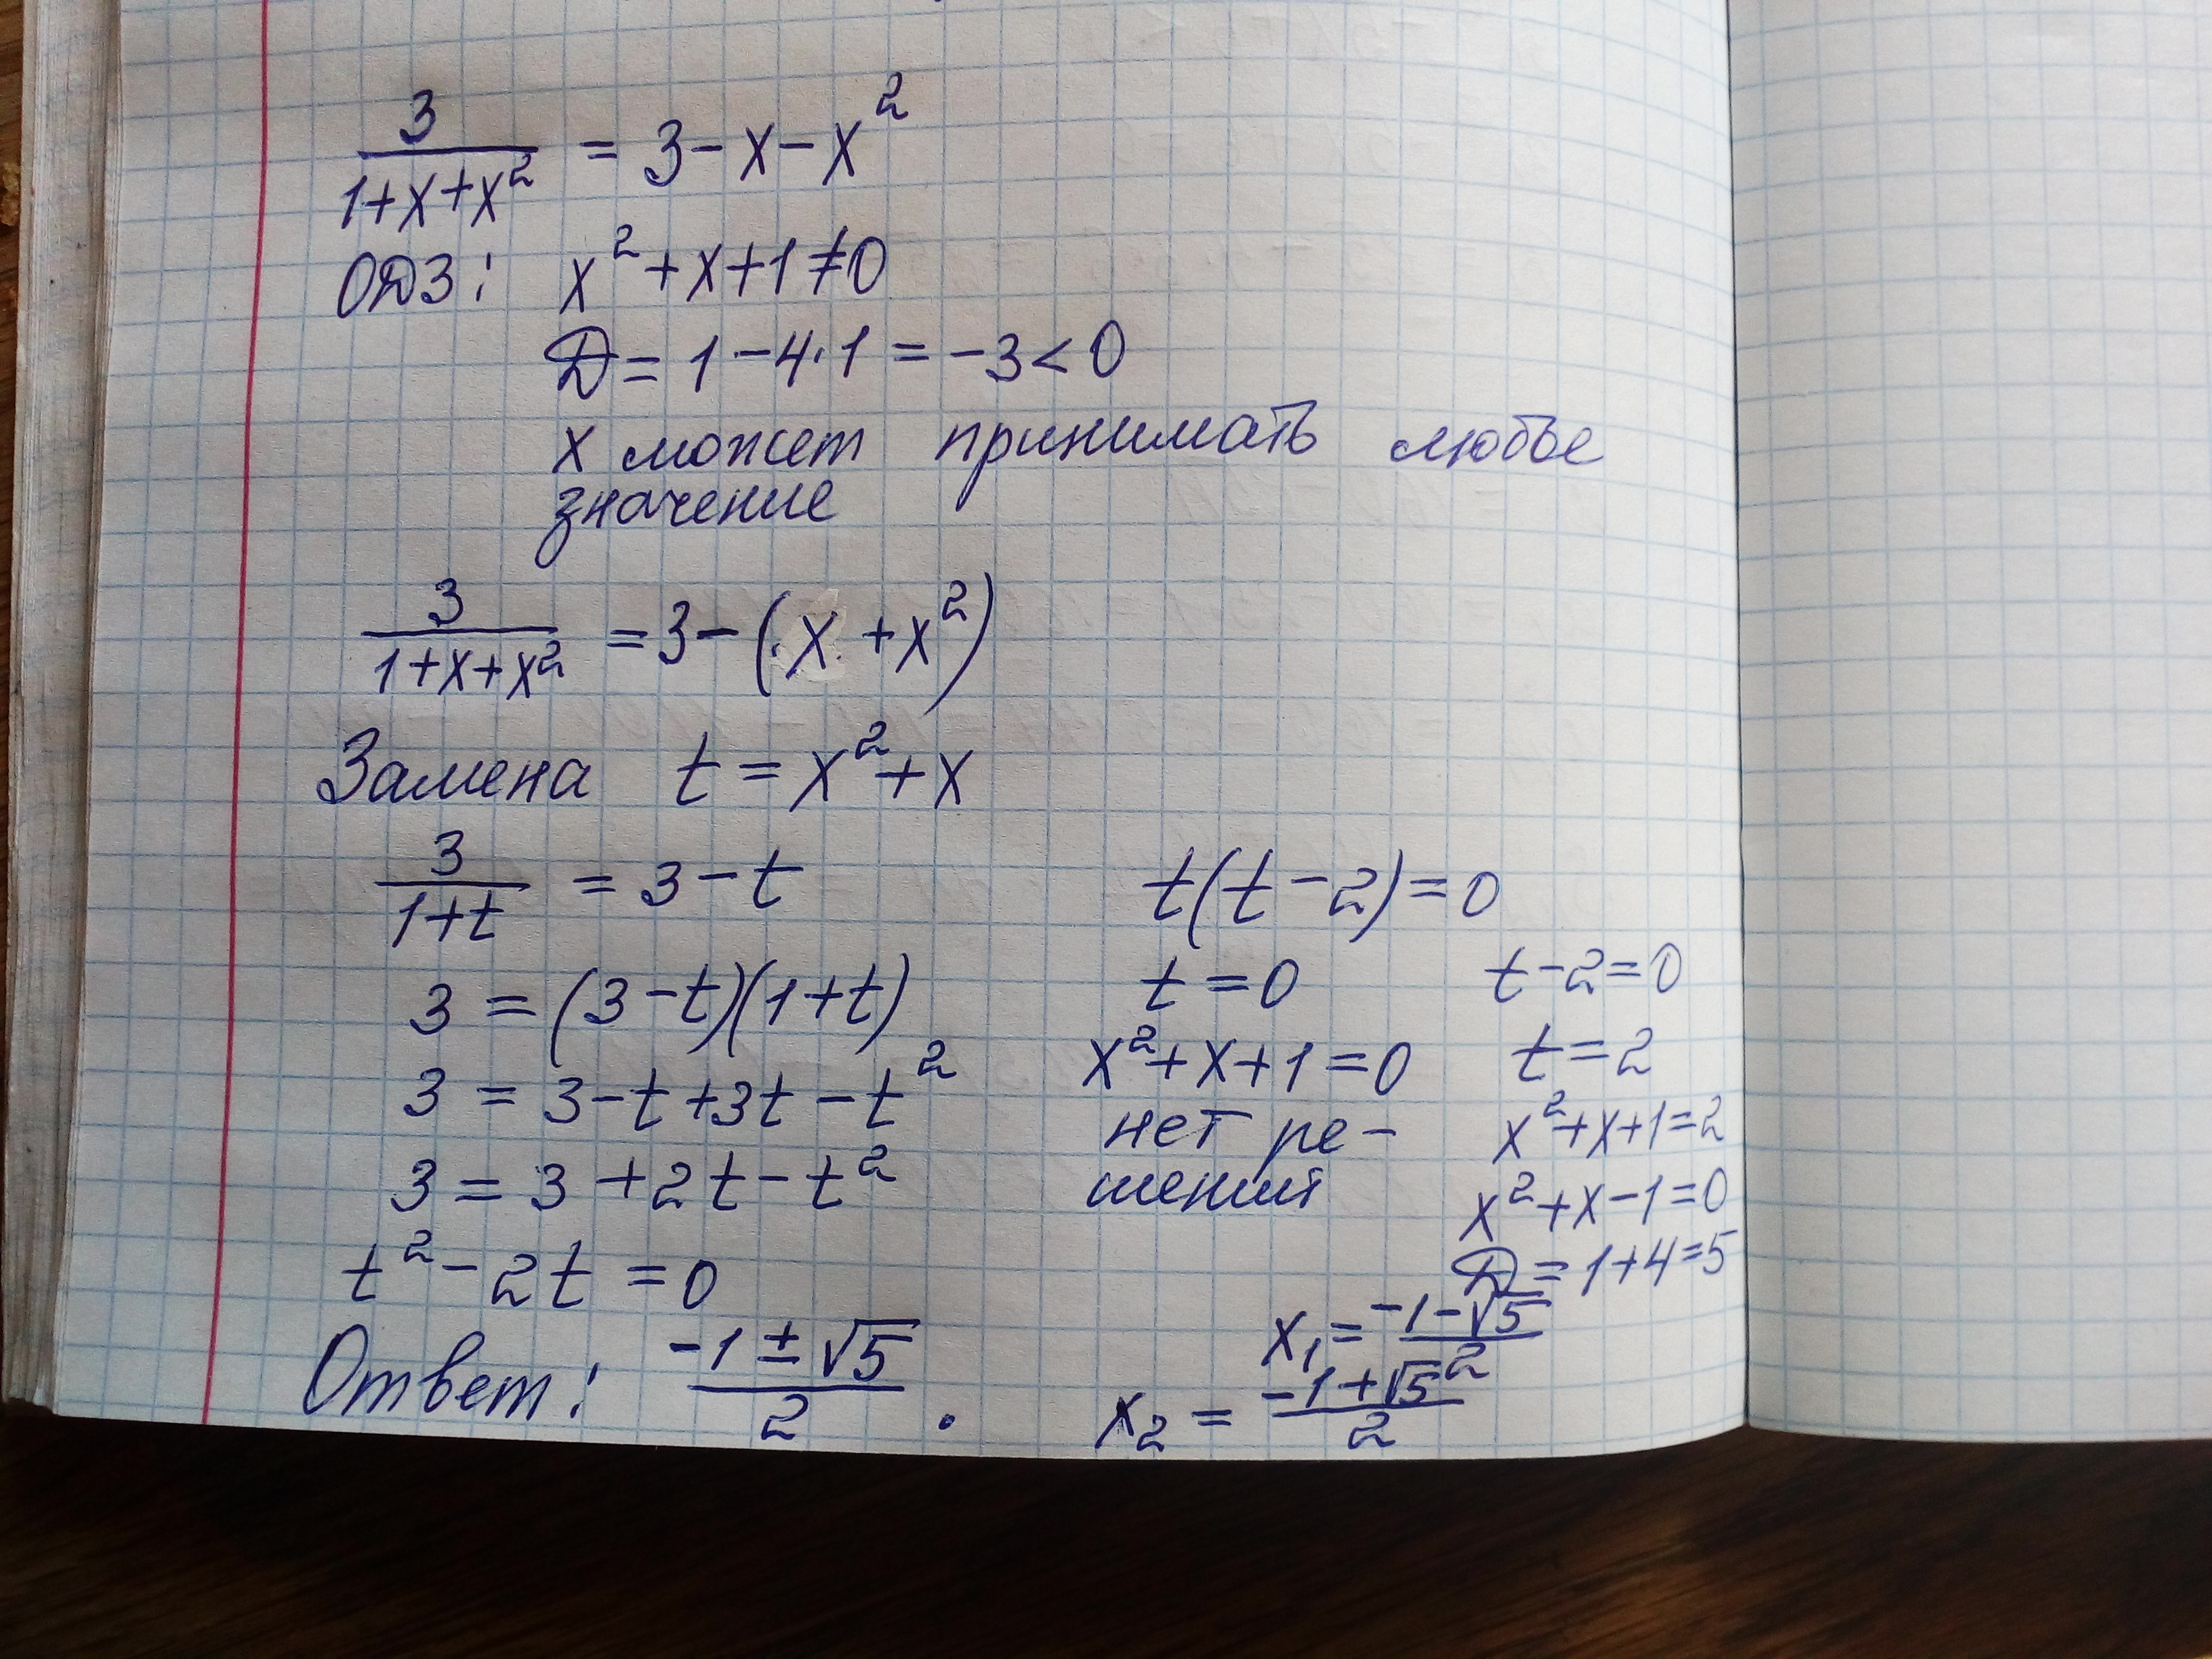 3/(1+x+x²) = 3-x-x²
ОДЗ: x²+x+1≠0
Д = 1-4·1 = -3<0
x может принимать любье
значение
3/(1+x+x²) = 3-(x+x²)
Замена t = x²+x
3/(1+t) = 3-t
3 = (3-t)(1+t)
3 = 3-t+3t-t²
3 = 3+2t-t²
t²-2t = 0
t(t-2)=0
t = 0
x²+x+1=0
нет ре-
шений
t-2=0
t=2
x²+x+1=2
x²+x-1=0
Д = 1+4=5
x₁ = (-1-√5)/2
x₂ = (-1+√5)/2
Ответ: (-1±√5)/2.